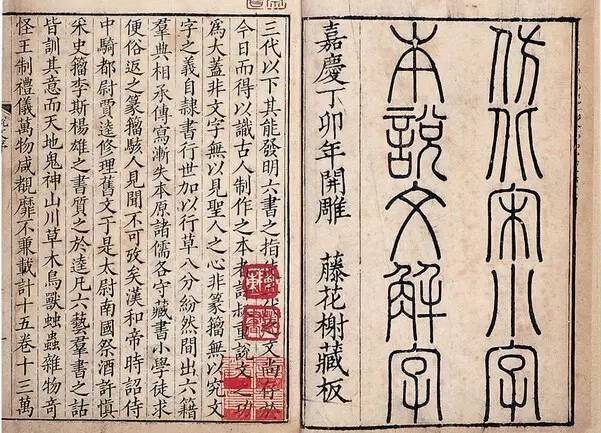 仿北宋小字
本說文解字
嘉慶丁卯年開雕 藤花榭藏板
三代以下其能發明六書之指使三代之文尚存於
今日而得以識古人制作之本者許叔重說文之功
為大蓋非文字無以見聖人之心非篆籀無以究文
字之義自隸書行世加以行草八分紛然間出六籍
羣典相承傳寫漸失本原諸儒各守藏書小學徒求
便俗返之篆籀駭人見聞不可攷矣漢和帝時詔侍
中騎都尉賈逵修理舊文于是太尉南國祭酒許慎
采史籀李斯楊雄之書質之於逵凡六藝羣書之詁
皆訓其意而天地鬼神山川草木鳥獸蟲雜物奇
怪王制禮儀萬物咸覩靡不兼載計十五卷十三萬